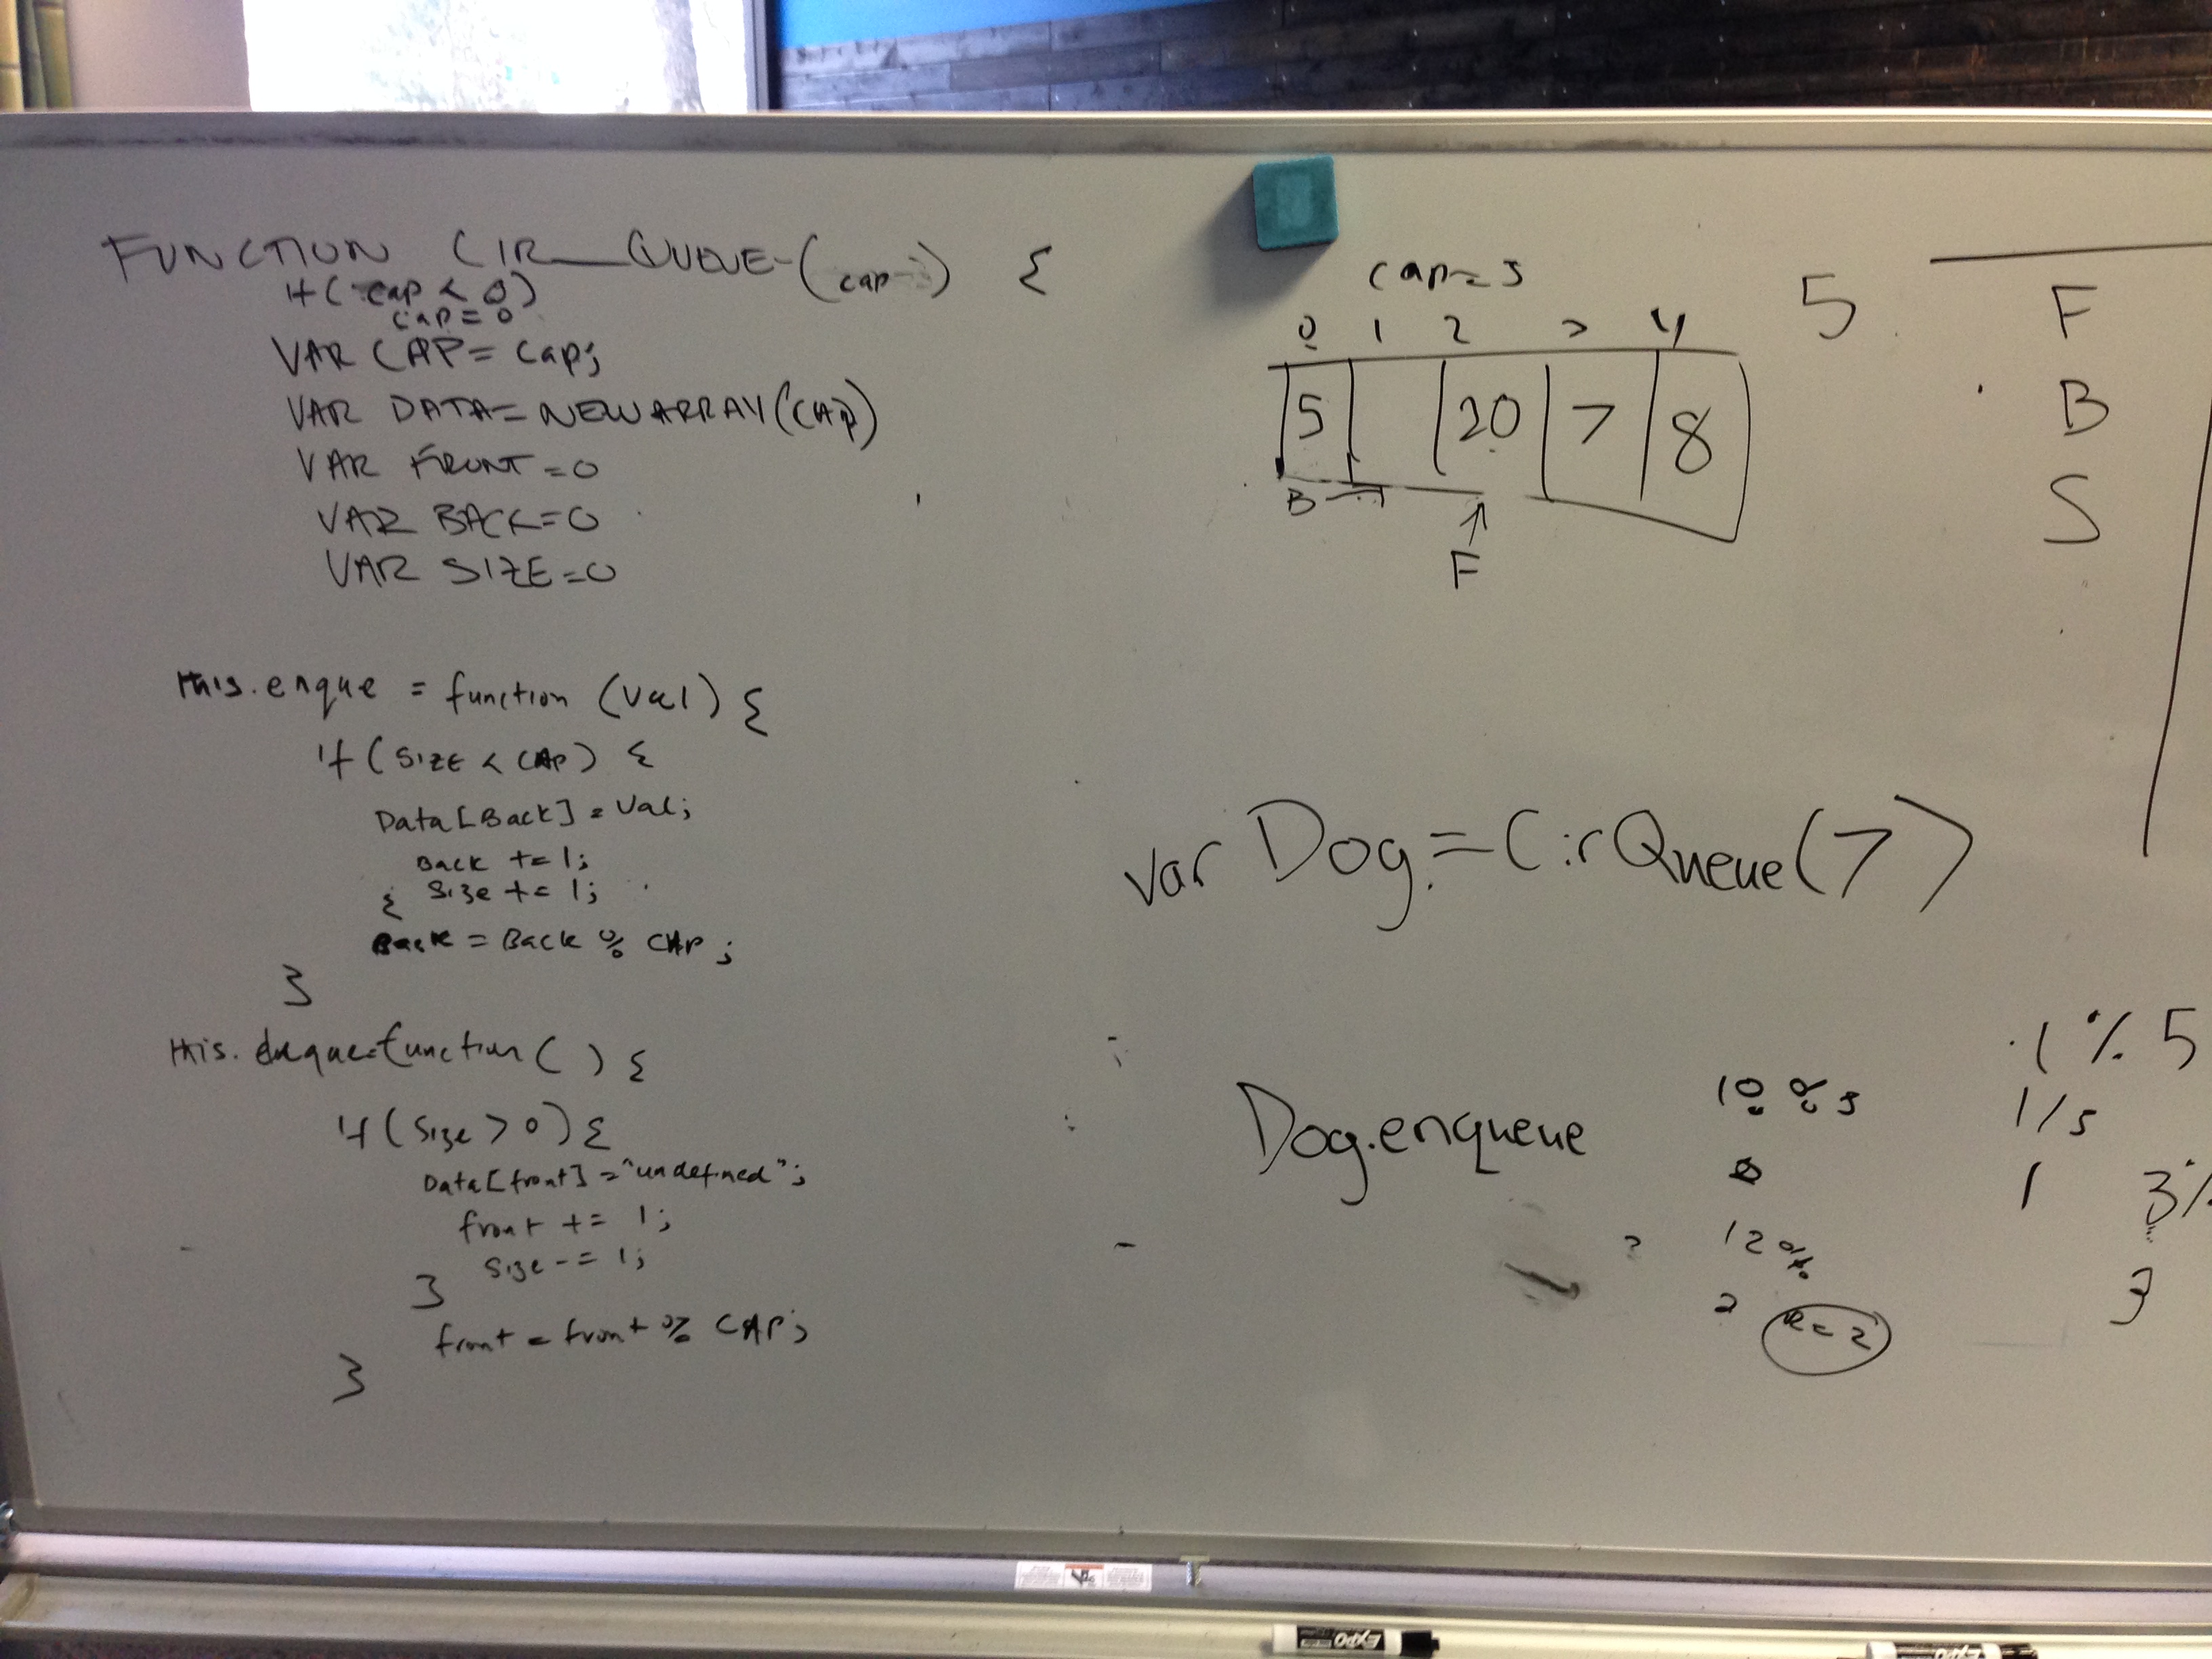 FUNCTION CIR_QUEUE (cap) {
if (cap < 0)
cap = 0
VAR CAP = cap;
VAR DATA = NEW ARRAY (CAP)
VAR FRONT = 0
VAR BACK = 0
VAR SIZE = 0
this.enque = function (val) {
if (SIZE < CAP) {
Data [Back] = val;
Back += 1;
{ Size += 1;
Back = Back % CAP ;
}
this. deque = function ( ) {
if (Size > 0) {
Data [front] = "undefined";
front += 1;
Size -= 1;
}
front = front % CAP;
}
cap = 5
0 1 2 3 4
5 20 7 8
B
F
5
F
B
S
var Dog = CirQueue(7)
Dog.enqueue
10 % 5
0
12 %
2 R = 2
1 % 5
1/5
1
3%
3
EXPO
EXPO